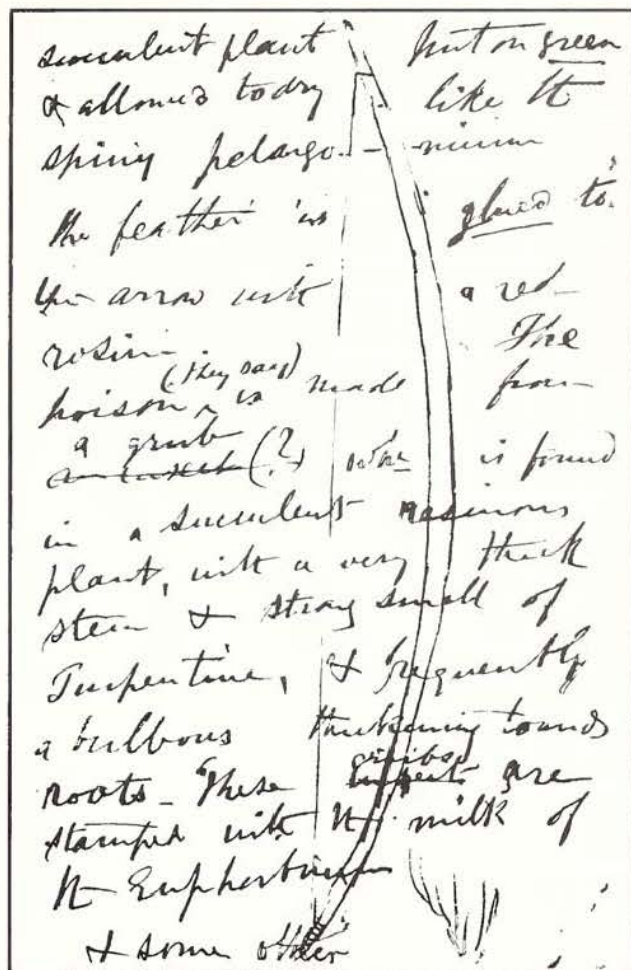 succulent plant put on green
& allowed to dry like the
spiny pelargo - nium
the feather is glued to
the arrow with a red
rosin The
poison (they say) is made from
a grub
an insect (?) wh is found
in a succulent resinous
plant, with a very thick
stem & strong smell of
Turpentine, & frequently
a bulbous thickening towards
roots - These grubs are
stamped with the milk of
the Euphorbium
& some other